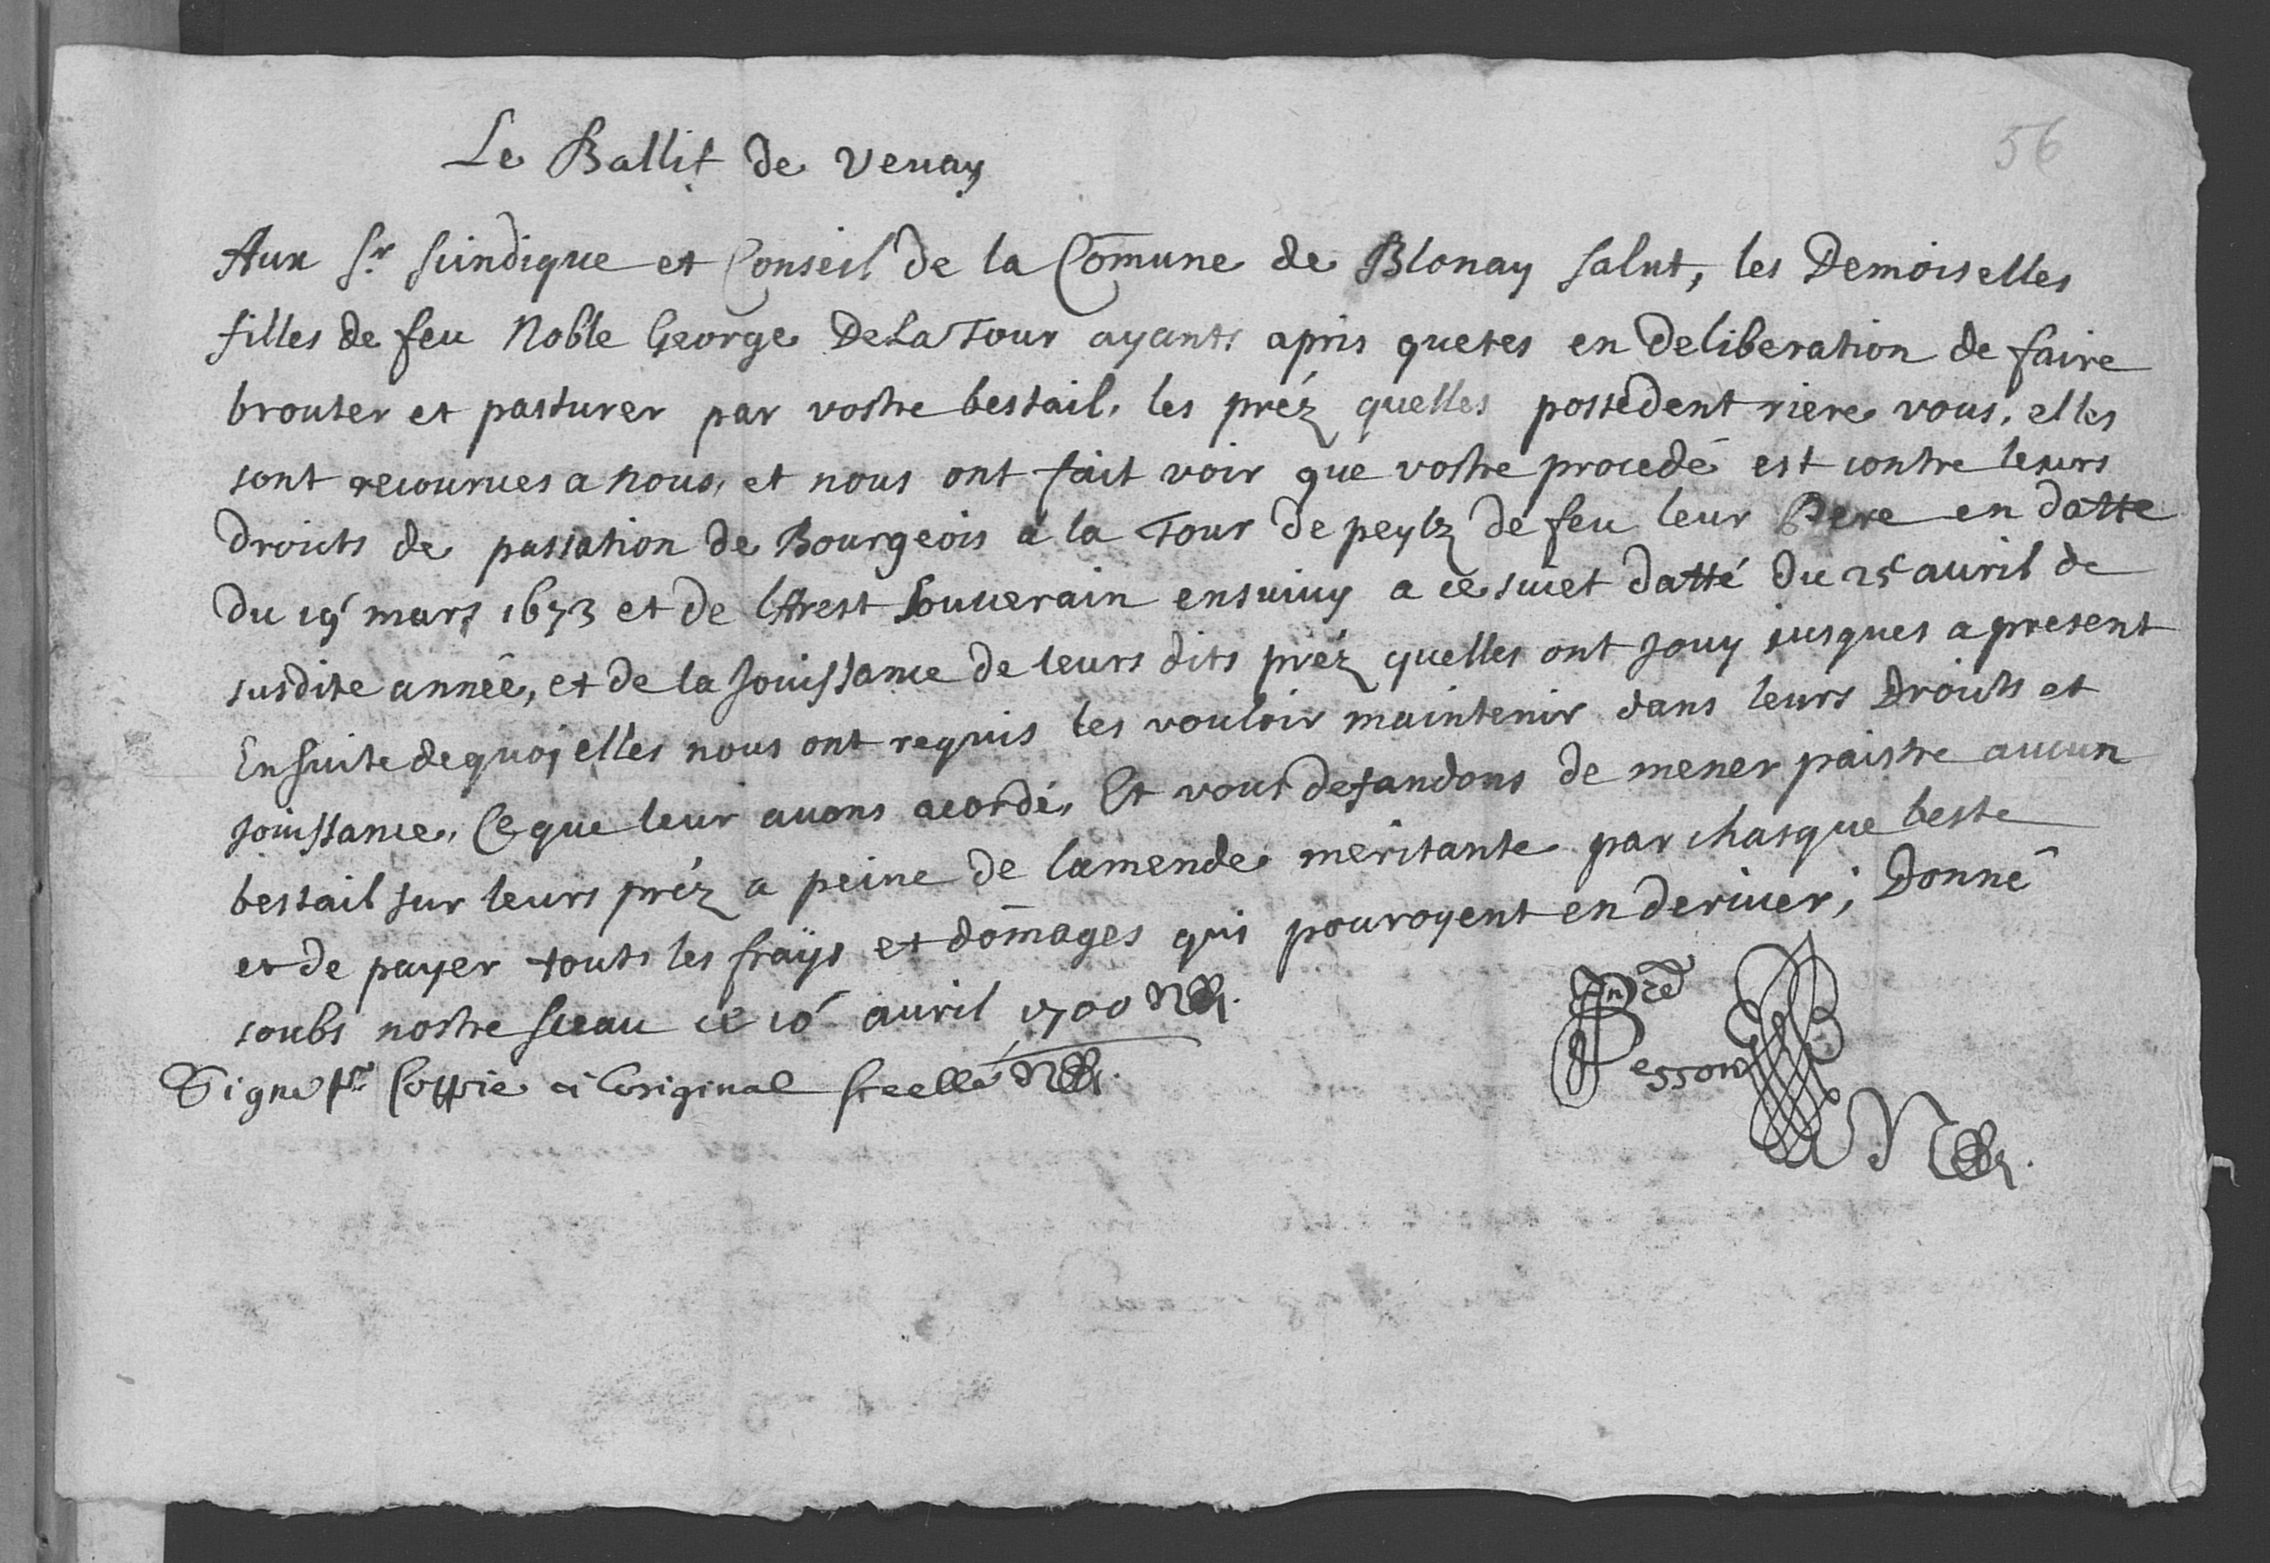 Le Ballif de Vevay
56
Aux Sr. Scindique et Conseil de la Comune de Blonay salut, les Demoiselles
filles de feu Noble George DeLaTour ayants apris quetes en deliberation de faire
brouter et pasturer par vostre bestail, les préz quelles possedent riere vous, elles
sont recourues a nous, et nous ont fait voir que vostre procedé est contre leurs
droicts de passation de Bourgeois a la Tour de peylz de feu leur Pere en datte
du 19 mars 1673 et de lArest Souverain ensuivy a ce suiet datté du 25 avril de
susdite année, et de la Jouissance de leurs dits préz quelles ont Jouy iusques a present
Ensuite dequoy elles nous ont requis les vouloir maintenir dans leurs Droicts et
Jouissance, Ce que leur avons acordé, Et vous defandons de mener paistre aucun
bestail sur leurs préz a peine de lamende meritante par chasque beste
et de payer touts les frays et domages qui pouroyent en deriver; Donné
soubs nostre sceau ce 10 avril 1700
Signé pr. Coppie a Loriginal sceellé
Besson